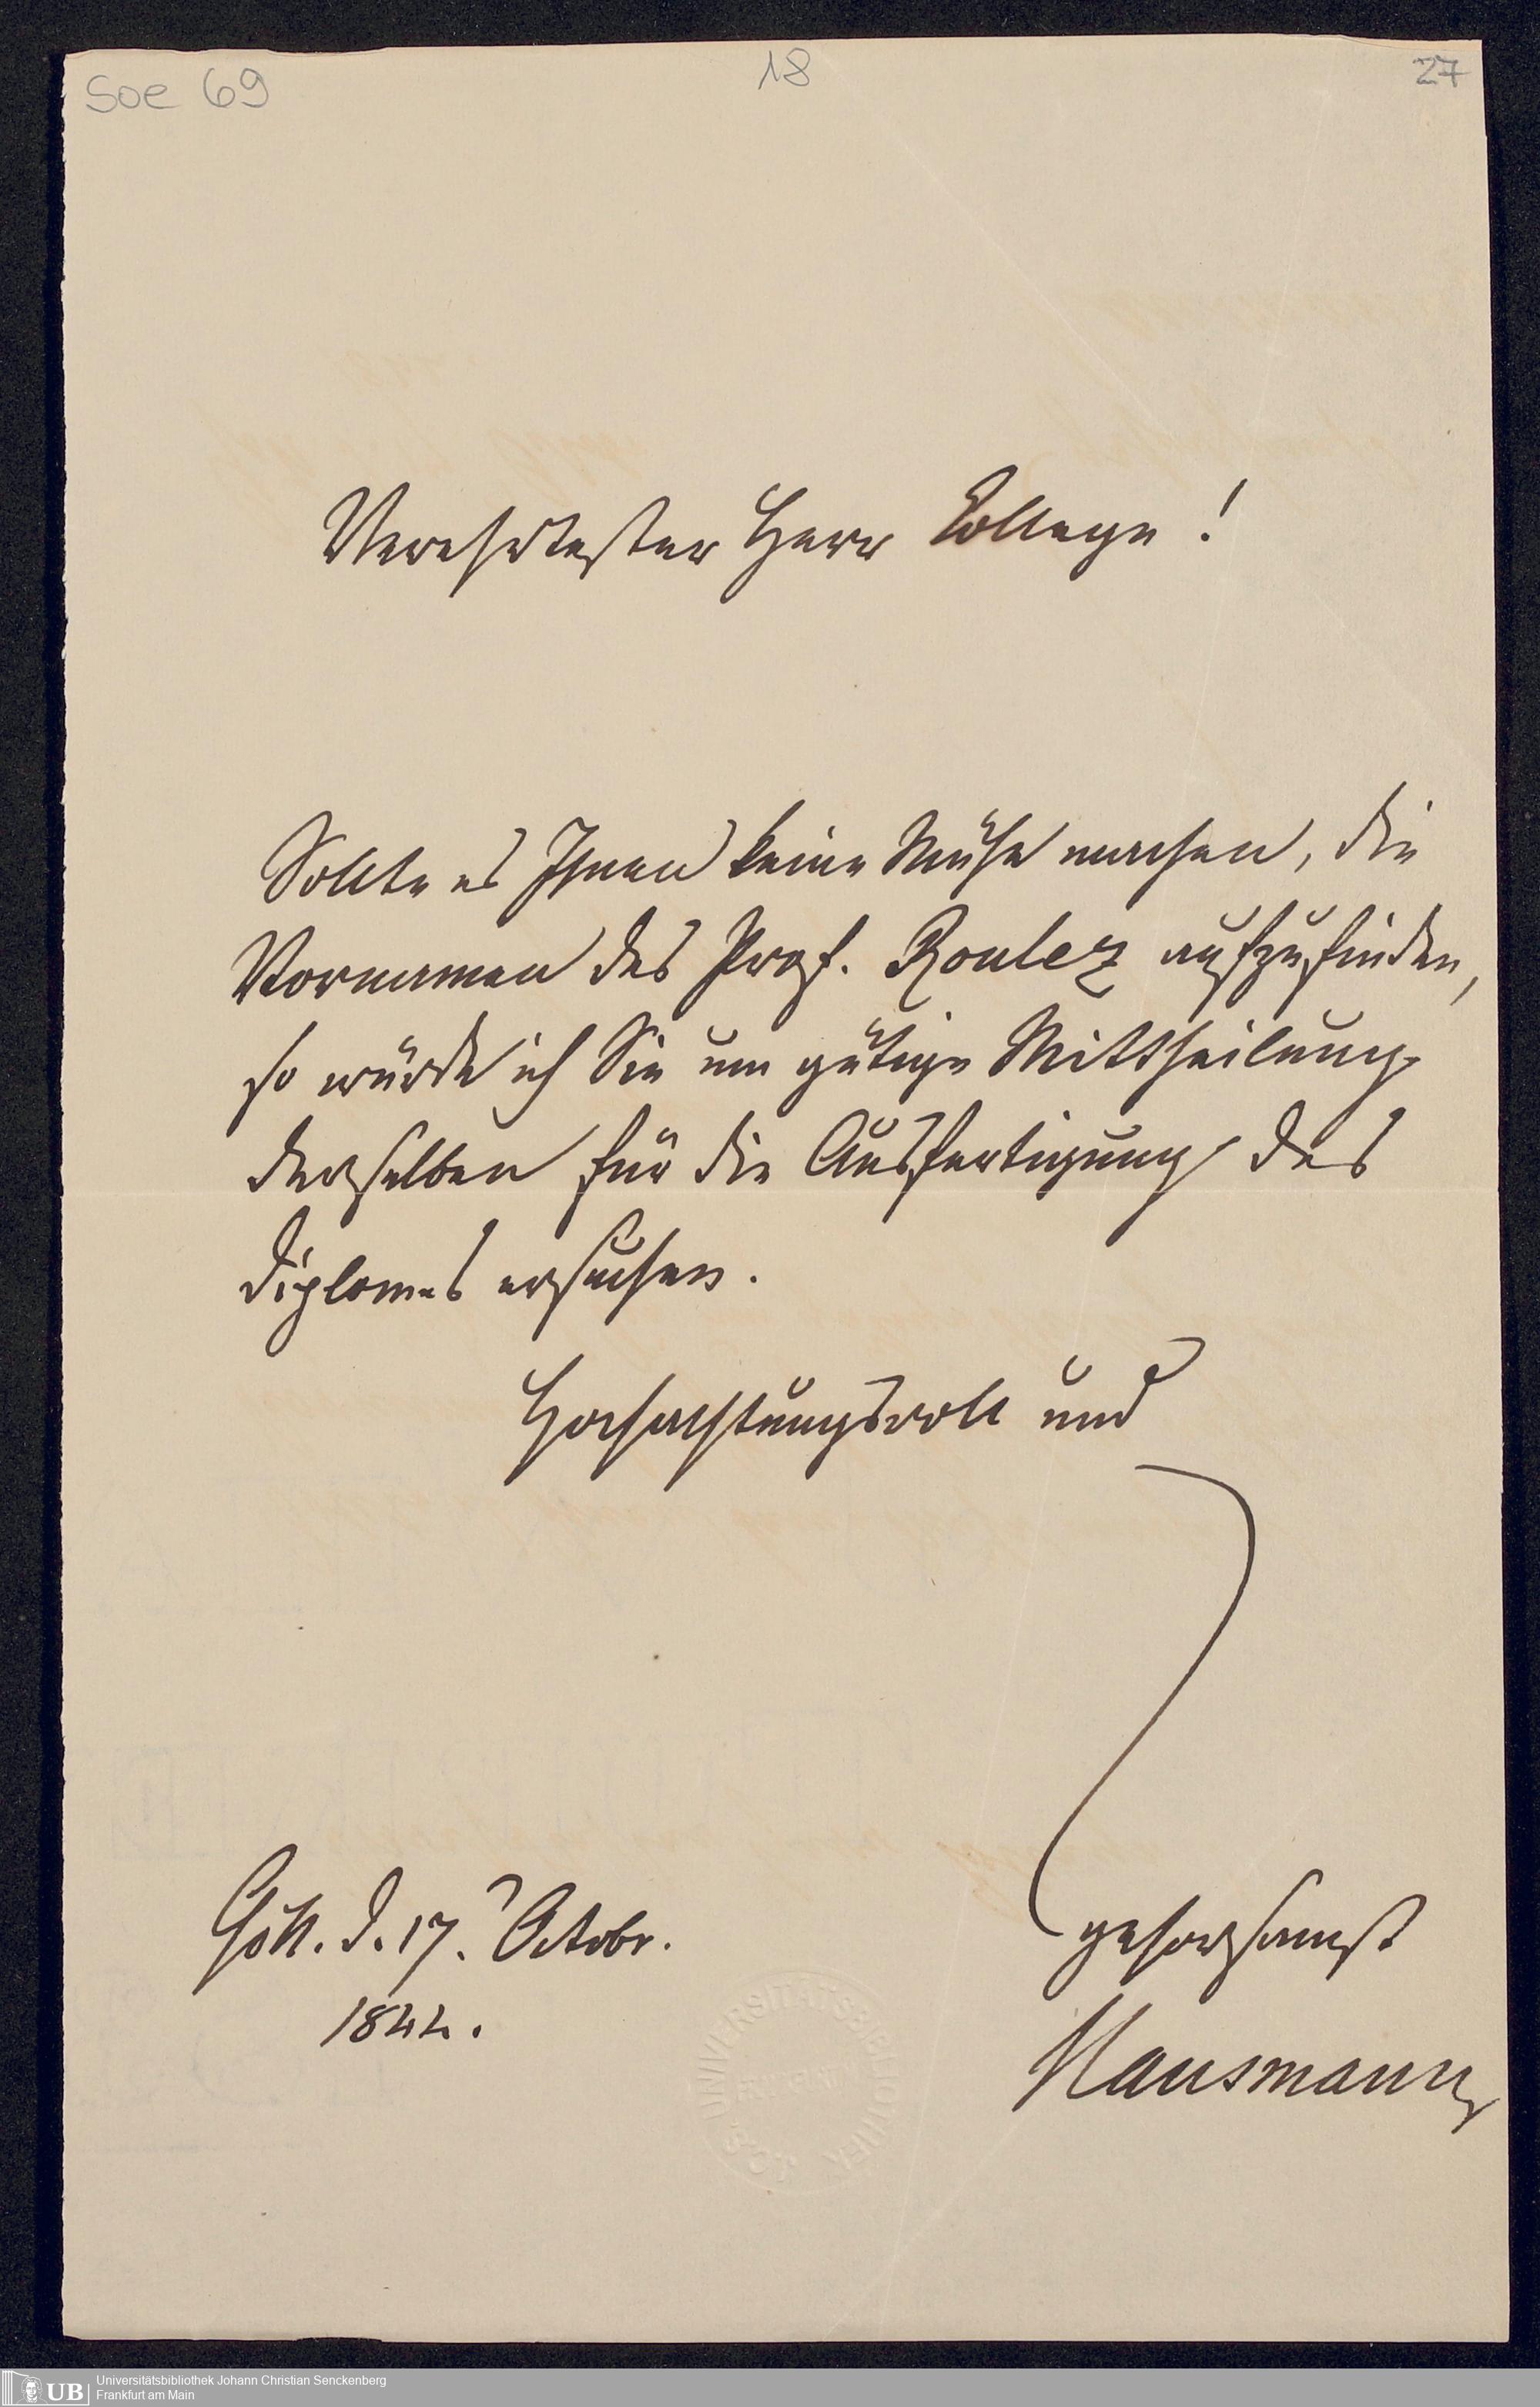 Soe 69
18
27
Verehrtester Herr College!
Sollte es Ihnen keine Mühe machen, die
Vornamen des Prof. Roulez aufzufinden,
so würde ich Sie um gütige Mittheilung
derselben für die Ausfertigung des
Diplomes ersuchen.
Hochachtungsvoll und
gehorsamst
Gött. d. 17. Octobr.
Hausmann
UNIVERSITÄTSBIBLIOTHEK
UB
Universitätsbibliothek Johann Christian Senckenberg
Frankfurt am Main